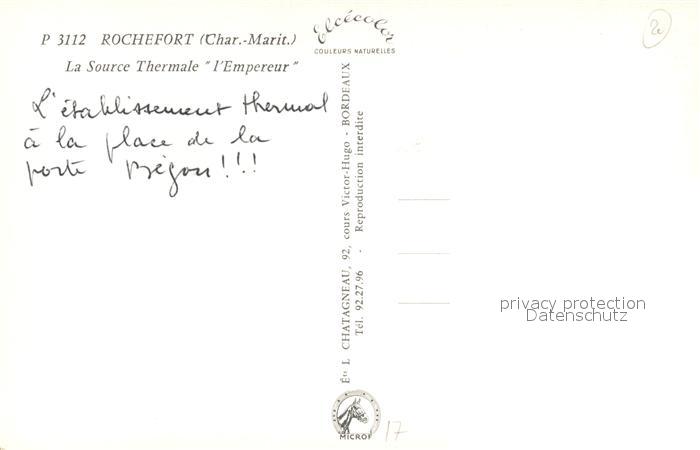 P 3112 ROCHEFORT (Char.-Marit.)
La Source Thermale "l'Empereur"
L'établissement thermal
à la place de la
porte Bégon!!!
Elcécolor
COULEURS NATURELLES
Éts L CHATAGNEAU, 92, cours Victor-Hugo - BORDEAUX
Tél. 92.27.96 - Reproduction interdite
MICRO
17
privacy protection
Datenschutz